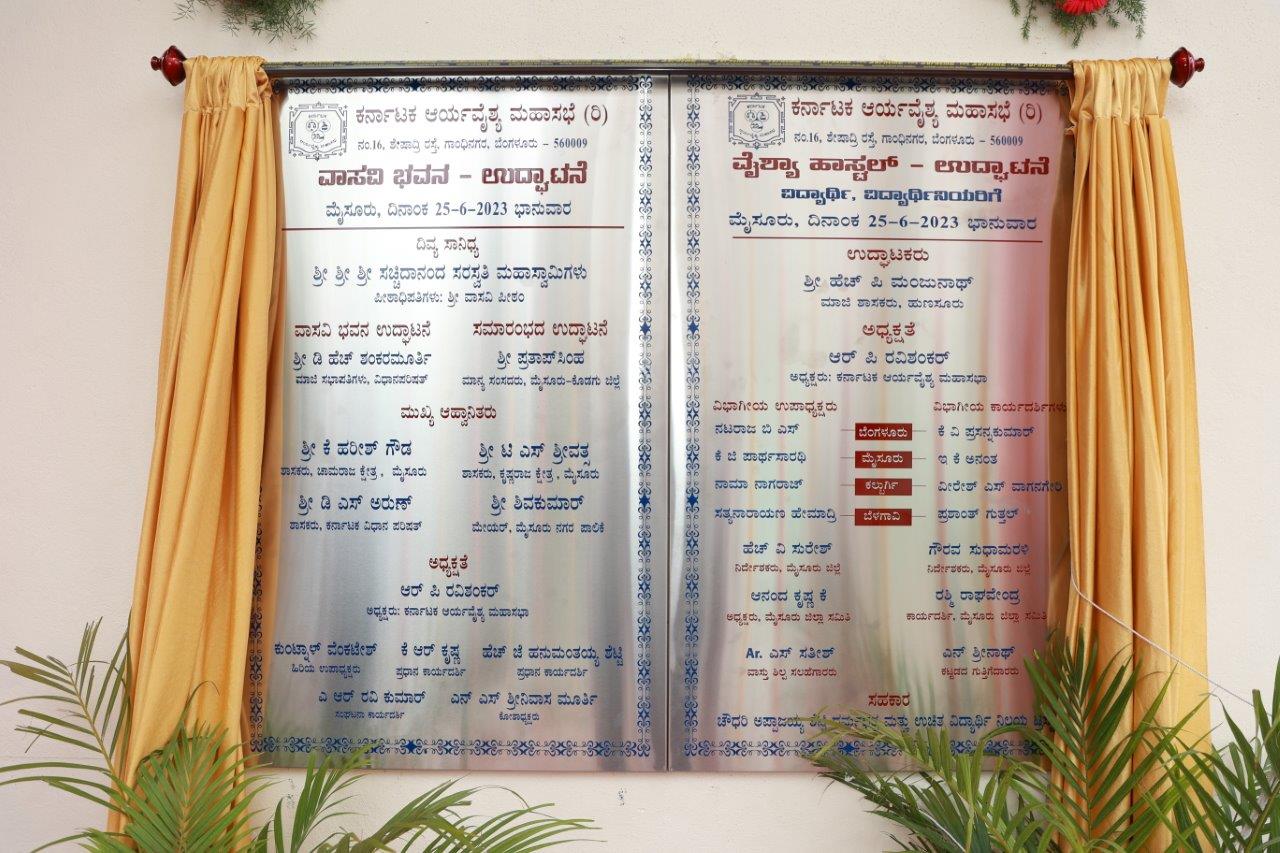 ಕರ್ನಾಟಕ ಆರ್ಯವೈಶ್ಯ ಮಹಾಸಭೆ (ರಿ)
ನಂ.16, ಶೇಷಾದ್ರಿ ರಸ್ತೆ, ಗಾಂಧಿನಗರ, ಬೆಂಗಳೂರು - 560009
ವಾಸವಿ ಭವನ - ಉದ್ಘಾಟನೆ
ಮೈಸೂರು, ದಿನಾಂಕ 25-6-2023 ಭಾನುವಾರ
ದಿವ್ಯ ಸಾನಿಧ್ಯ
ಶ್ರೀ ಶ್ರೀ ಶ್ರೀ ಸಚ್ಚಿದಾನಂದ ಸರಸ್ವತಿ ಮಹಾಸ್ವಾಮಿಗಳು
ಪೀಠಾಧಿಪತಿಗಳು: ಶ್ರೀ ವಾಸವಿ ಪೀಠಂ
ವಾಸವಿ ಭವನ ಉದ್ಘಾಟನೆ ಸಮಾರಂಭದ ಉದ್ಘಾಟನೆ
ಶ್ರೀ ಡಿ ಹೆಚ್ ಶಂಕರಮೂರ್ತಿ ಶ್ರೀ ಪ್ರತಾಪ್‌ಸಿಂಹ
ಮಾಜಿ ಸಭಾಪತಿಗಳು, ವಿಧಾನಪರಿಷತ್ ಮಾನ್ಯ ಸಂಸದರು, ಮೈಸೂರು-ಕೊಡಗು ಜಿಲ್ಲೆ
ಮುಖ್ಯ ಆಹ್ವಾನಿತರು
ಶ್ರೀ ಕೆ ಹರೀಶ್ ಗೌಡ ಶ್ರೀ ಟಿ ಎಸ್ ಶ್ರೀವತ್ಸ
ಶಾಸಕರು, ಚಾಮರಾಜ ಕ್ಷೇತ್ರ , ಮೈಸೂರು ಶಾಸಕರು, ಕೃಷ್ಣರಾಜ ಕ್ಷೇತ್ರ , ಮೈಸೂರು
ಶ್ರೀ ಡಿ ಎಸ್ ಅರುಣ್ ಶ್ರೀ ಶಿವಕುಮಾರ್
ಶಾಸಕರು, ಕರ್ನಾಟಕ ವಿಧಾನ ಪರಿಷತ್ ಮೇಯರ್, ಮೈಸೂರು ನಗರ ಪಾಲಿಕೆ
ಅಧ್ಯಕ್ಷತೆ
ಆರ್ ಪಿ ರವಿಶಂಕರ್
ಅಧ್ಯಕ್ಷರು: ಕರ್ನಾಟಕ ಆರ್ಯವೈಶ್ಯ ಮಹಾಸಭಾ
ಕುಂಟ್ನಾಳ್ ವೆಂಕಟೇಶ್ ಕೆ ಆರ್ ಕೃಷ್ಣ ಹೆಚ್ ಜಿ ಹನುಮಂತಯ್ಯ ಶೆಟ್ಟಿ
ಹಿರಿಯ ಉಪಾಧ್ಯಕ್ಷರು ಪ್ರಧಾನ ಕಾರ್ಯದರ್ಶಿ ಪ್ರಧಾನ ಕಾರ್ಯದರ್ಶಿ
ಎ ಆರ್ ರವಿ ಕುಮಾರ್ ಎನ್ ಎಸ್ ಶ್ರೀನಿವಾಸ ಮೂರ್ತಿ
ಸಂಘಟನಾ ಕಾರ್ಯದರ್ಶಿ ಕೋಶಾಧ್ಯಕ್ಷರು
ಕರ್ನಾಟಕ ಆರ್ಯವೈಶ್ಯ ಮಹಾಸಭೆ (ರಿ)
ನಂ.16, ಶೇಷಾದ್ರಿ ರಸ್ತೆ, ಗಾಂಧಿನಗರ, ಬೆಂಗಳೂರು - 560009
ವೈಶ್ಯಾ ಹಾಸ್ಟಲ್ - ಉದ್ಘಾಟನೆ
ವಿದ್ಯಾರ್ಥಿ, ವಿದ್ಯಾರ್ಥಿನಿಯರಿಗೆ
ಮೈಸೂರು, ದಿನಾಂಕ 25-6-2023 ಭಾನುವಾರ
ಉದ್ಘಾಟಕರು
ಶ್ರೀ ಹೆಚ್ ಪಿ ಮಂಜುನಾಥ್
ಮಾಜಿ ಶಾಸಕರು, ಹುಣಸೂರು
ಅಧ್ಯಕ್ಷತೆ
ಆರ್ ಪಿ ರವಿಶಂಕರ್
ಅಧ್ಯಕ್ಷರು: ಕರ್ನಾಟಕ ಆರ್ಯವೈಶ್ಯ ಮಹಾಸಭಾ
ವಿಭಾಗೀಯ ಉಪಾಧ್ಯಕ್ಷರು ವಿಭಾಗೀಯ ಕಾರ್ಯದರ್ಶಿಗಳು
ನಟರಾಜ ಬಿ ಎಸ್ ಬೆಂಗಳೂರು ಕೆ ವಿ ಪ್ರಸನ್ನಕುಮಾರ್
ಕೆ ಜಿ ಪಾರ್ಥಸಾರಥಿ ಮೈಸೂರು ಇ ಕೆ ಅನಂತ
ನಾಮಾ ನಾಗರಾಜ್ ಕಲ್ಬುರ್ಗಿ ವೀರೇಶ್ ಎಸ್ ವಾಗನಗೇರಿ
ಸತ್ಯನಾರಾಯಣ ಹೇಮಾದ್ರಿ ಬೆಳಗಾವಿ ಪ್ರಶಾಂತ್ ಗುತ್ತಲ್
ಹೆಚ್ ವಿ ಸುರೇಶ್ ಗೌರವ ಸುಧಾಮರಳಿ
ನಿರ್ದೇಶಕರು, ಮೈಸೂರು ಜಿಲ್ಲೆ ನಿರ್ದೇಶಕರು, ಮೈಸೂರು ಜಿಲ್ಲೆ
ಆನಂದ ಕೃಷ್ಣ ಕೆ ರಶ್ಮಿ ರಾಘವೇಂದ್ರ
ಅಧ್ಯಕ್ಷರು, ಮೈಸೂರು ಜಿಲ್ಲಾ ಸಮಿತಿ ಕಾರ್ಯದರ್ಶಿ, ಮೈಸೂರು ಜಿಲ್ಲಾ ಸಮಿತಿ
Ar. ಎಸ್ ಸತೀಶ್ ಎನ್ ಶ್ರೀನಾಥ್
ವಾಸ್ತು ಶಿಲ್ಪ ಸಲಹೆಗಾರರು ಕಟ್ಟಡದ ಗುತ್ತಿಗೆದಾರರು
ಸಹಕಾರ
ಚೌಧರಿ ಅಪ್ಪಾಜಯ್ಯ ಶೆಟ್ಟಿ ಧರ್ಮಛತ್ರ ಮತ್ತು ಉಚಿತ ವಿದ್ಯಾರ್ಥಿ ನಿಲಯ